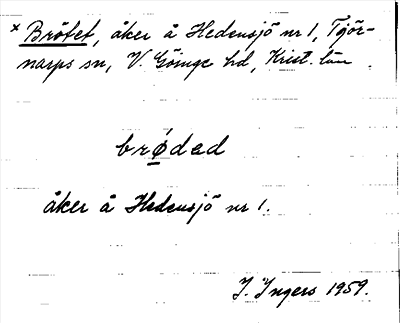 × Brötet, åker å Hedensjö nr 1, Tjör-
narps sn, V. Göinge hd, Krist. län.
brødad
åker å Hedensjö nr 1.
I. Ingers 1959.